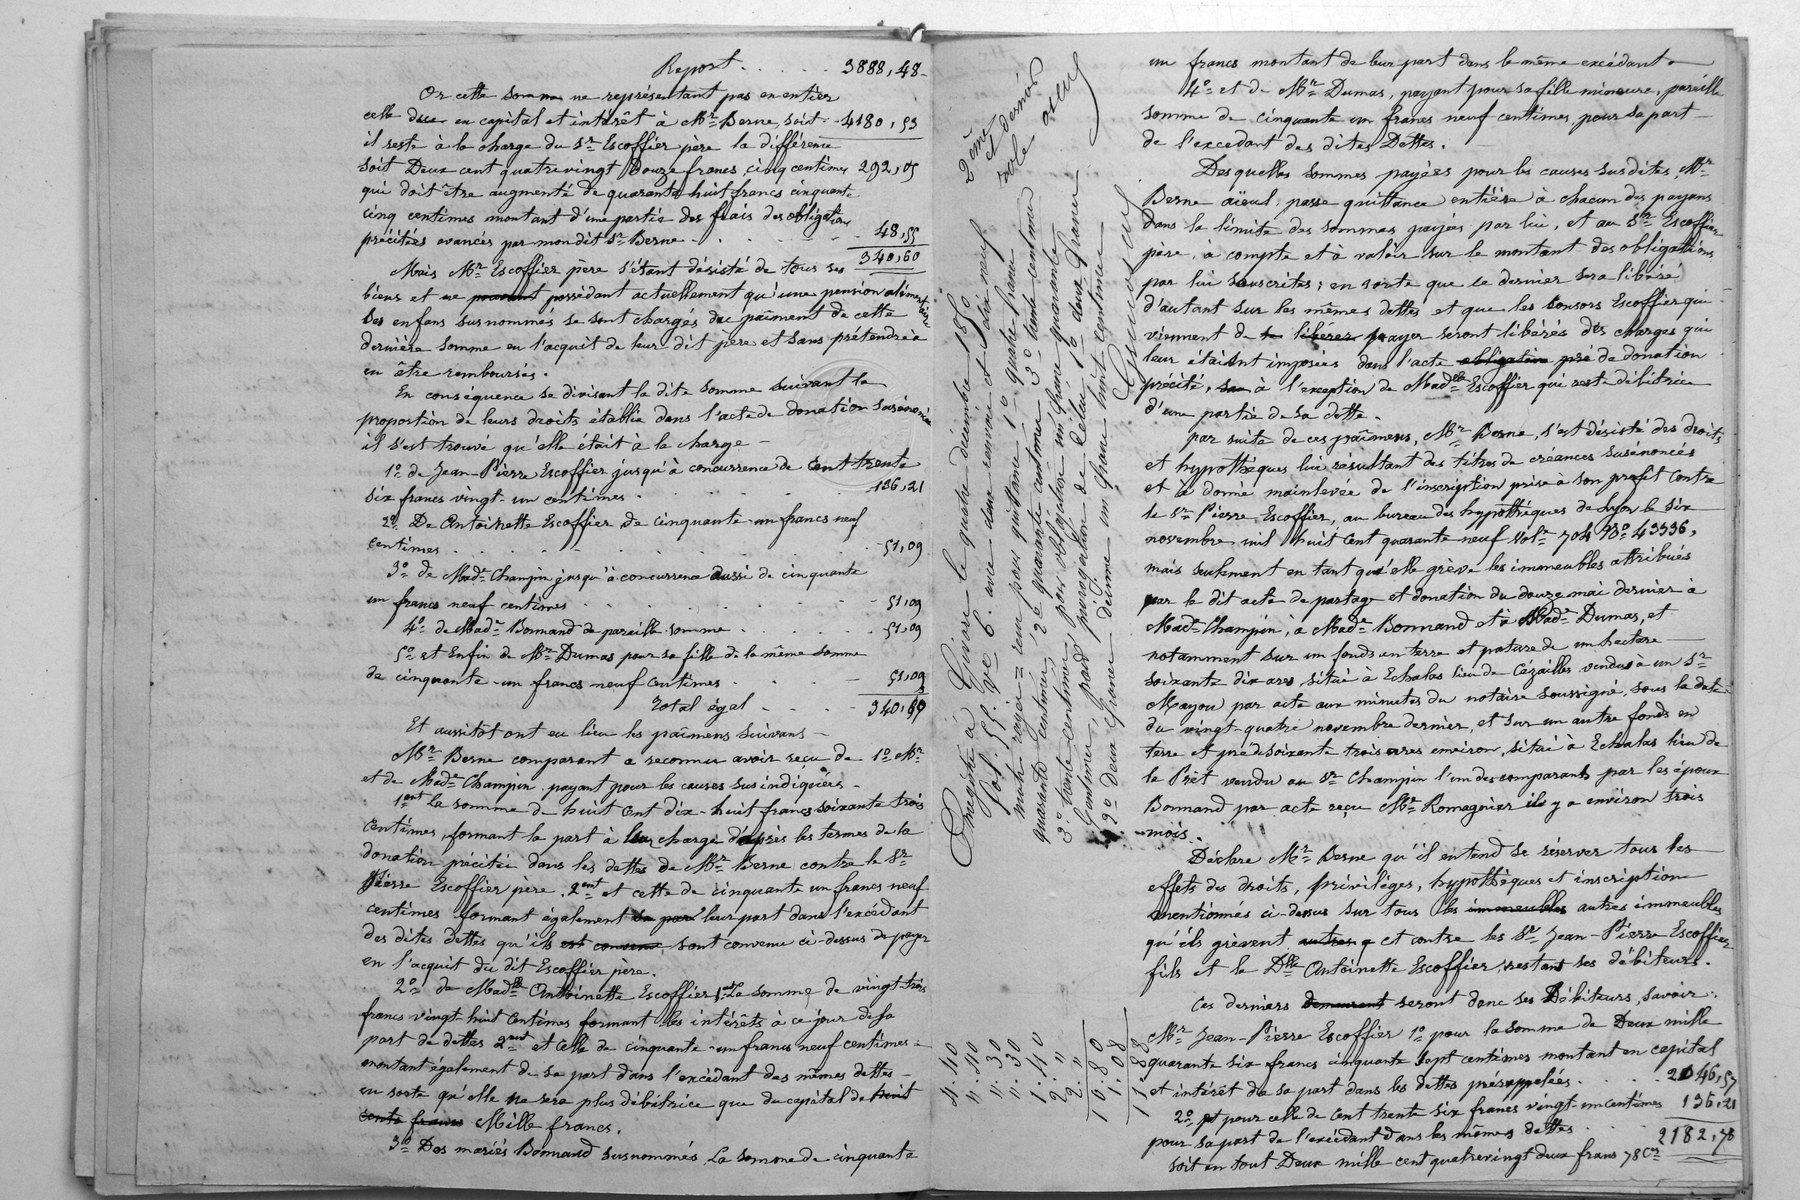 Report . . . . . 3888,48-
Or cette somme ne représentant pas en entier
celle due en capital et intérêt à Mr Berne, soit - 4180,53
il reste à la charge du Sr Escoffier père la différence
soit Deux cent quatrevingt Douze francs, cinq centimes 292,05
qui doit être augmenté de quarante huit francs cinquante
cinq centimes montant d'une partie des frais des obligations
précitées avancés par mondit Sr Berne . . . . 48,55
340,60
Mais Mr Escoffier père s'étant désisté de tous ses
biens et ne pouvant possédant actuellement qu'une pension alimentaire
Ses enfans susnommés se sont chargés du paîment de cette
dernière somme en l'acquit de leur dit père et sans prétendre à
en être remboursés.
En conséquence se divisant la dite somme suivant la
proportion de leurs droits établie dans l'acte de donation susénoncé
il s'est trouvé qu'elle était à la charge -
1º de Jean-Pierre Escoffier jusqu'à concurrence de Cent trente
six francs vingt-un centimes . . . . 136,21
2º De Antoinette Escoffier de cinquante-un francs neuf
centimes . . . . . . 51,09
3º de Made Champin jusqu'à concurrence aussi de cinquante
un francs neuf centimes . . . . . 51,09
4º de Made Bonnand de pareille somme . . . . 51,09
5º et Enfin de Mr Dumas pour sa fille de la même somme
de cinquante-un francs neuf centimes . . . . 51,09
Total égal . . . . 340,
Et aussitot ont eu lieu les paîmens suivans -
Mr Berne comparant a reconnu avoir reçu de 1º Mr
et de Made Champin payant pour les causes sus indiquées -
1ent la somme de huit cent dix-huit francs soixante trois
centimes, formant la part à leur charge d'après les termes de la
donation précitée dans les dettes de Mr Berne contre le Sr
Pierre Escoffier père, 2ent et cette de cinquante un francs neuf
centimes formant également la part leur part dans l'excédant
des dites dettes qu'ils est convenu, sont convenu ci-dessus de payer
en l'acquit du dit Escoffier père.
2º de Madlle Antoinette Escoffier 1ent La somme de vingt-trois
francs vingt huit centimes formant les intérêts à ce jour de sa
part de dettes 2ent et celle de cinquante-un francs neuf centimes -
montant également de sa part dans l'excédant des mêmes dettes -
en sorte qu'elle ne sera plus débitrice que du capital de huit
cents francs Mille francs.
3º Des mariés Bonnand susnommés La somme de cinquante
2ème et dernier
rôle
Enregistré à Givors le quatre décembre 1850
fol. 55. Vo C. 6. avec deux renvois et dix neuf
mots rayés = reçu pour quittance 1º quatre francs
quarante centimes, 2º quarante centimes 3º trente centimes
3º trente centimes, pour obligation un franc quarante
centimes, pour prorogation de délai 1º deux francs
2º Deux francs, décime un franc huit centimes
4.40
".40
".30
".30
1.40
2. "
2. "
10.80
1.08
11.88
un francs montant de leur part dans le même excédant -
4º et de Mr Dumas, payant pour sa fille mineure, pareille
somme de cinquante un francs neuf centimes, pour sa part -
de l'excédant des dites Dettes.
Desquelles sommes payées pour les causes susdites, Mr
Berne aïeul, passe quittance entière à chacun des payans
Dans la limite des sommes payées par lui, et au Sr Escoffier
père, à compte et à valoir sur le montant des obligations
par lui souscrites; en sorte que ce dernier sera libéré
d'autant sur les mêmes dettes et que les consors Escoffier qui
viennent de se libérer payer seront libérés des charges qui
leur étaient imposées dans l'acte obligation pré de donation
précité, à l'exception de Madlle Escoffier qui reste débitrice
d'une partie de sa dette.
par suite de ces paîmens, Mr Berne, s'est désisté des droits
et hypothèques lui résultant des titres de créances susénoncés
et a donné mainlevée de l'inscription prise à son profit contre
le Sr Pierre Escoffier, au bureau des hypothèques de Lyon le six
novembre mil huit cent quarante neuf Vol. 704 No 43536,
mais seulement en tant qu'elle grève les immeubles attribués
par le dit acte de partage et donation du douze mai dernier à
Made Champin, à Made Bonnand et à Made Dumas, et
notamment sur un fonds en terre et pature de un hectare
soixante dix ares, situé à Echalas lieu de Cézailles vendu à un Sr
Mayou par acte aux minutes du notaire soussigné, sous la date
du vingt-quatre novembre dernier, et sur un autre fonds en
terre et pré de soixante trois ares environ, situé à Echalas lieu de
la Prêt vendu au Sr Champin l'un des comparants par les époux
Bonnand par acte reçu Mr Romagnier il y a environ trois
mois.
Déclare Mr Berne qu'il entend se réserver tous les
effets des droits, privilèges, hypothèques et inscription
mentionnés ci-dessus sur tous les immeubles autres immeubles
qu'ils grèvent autres q et contre les Sr Jean-Pierre Escoffier
fils et la Dlle Antoinette Escoffier, restant ses débiteurs.
Ces derniers demeurent seront donc ses Débiteurs, savoir:
Mr Jean-Pierre Escoffier 1º pour la somme de Deux mille
quarante six francs cinquante sept centimes montant en capital
et intérêt de sa part dans les dettes présappelées. . . 2046,57
2º et pour celle de cent trente six francs vingt-un centimes 136,21
pour sa part de l'excédant dans les mêmes dettes . . .
2182,78
soit en tout Deux mille cent quatrevingt deux francs 78 Ces